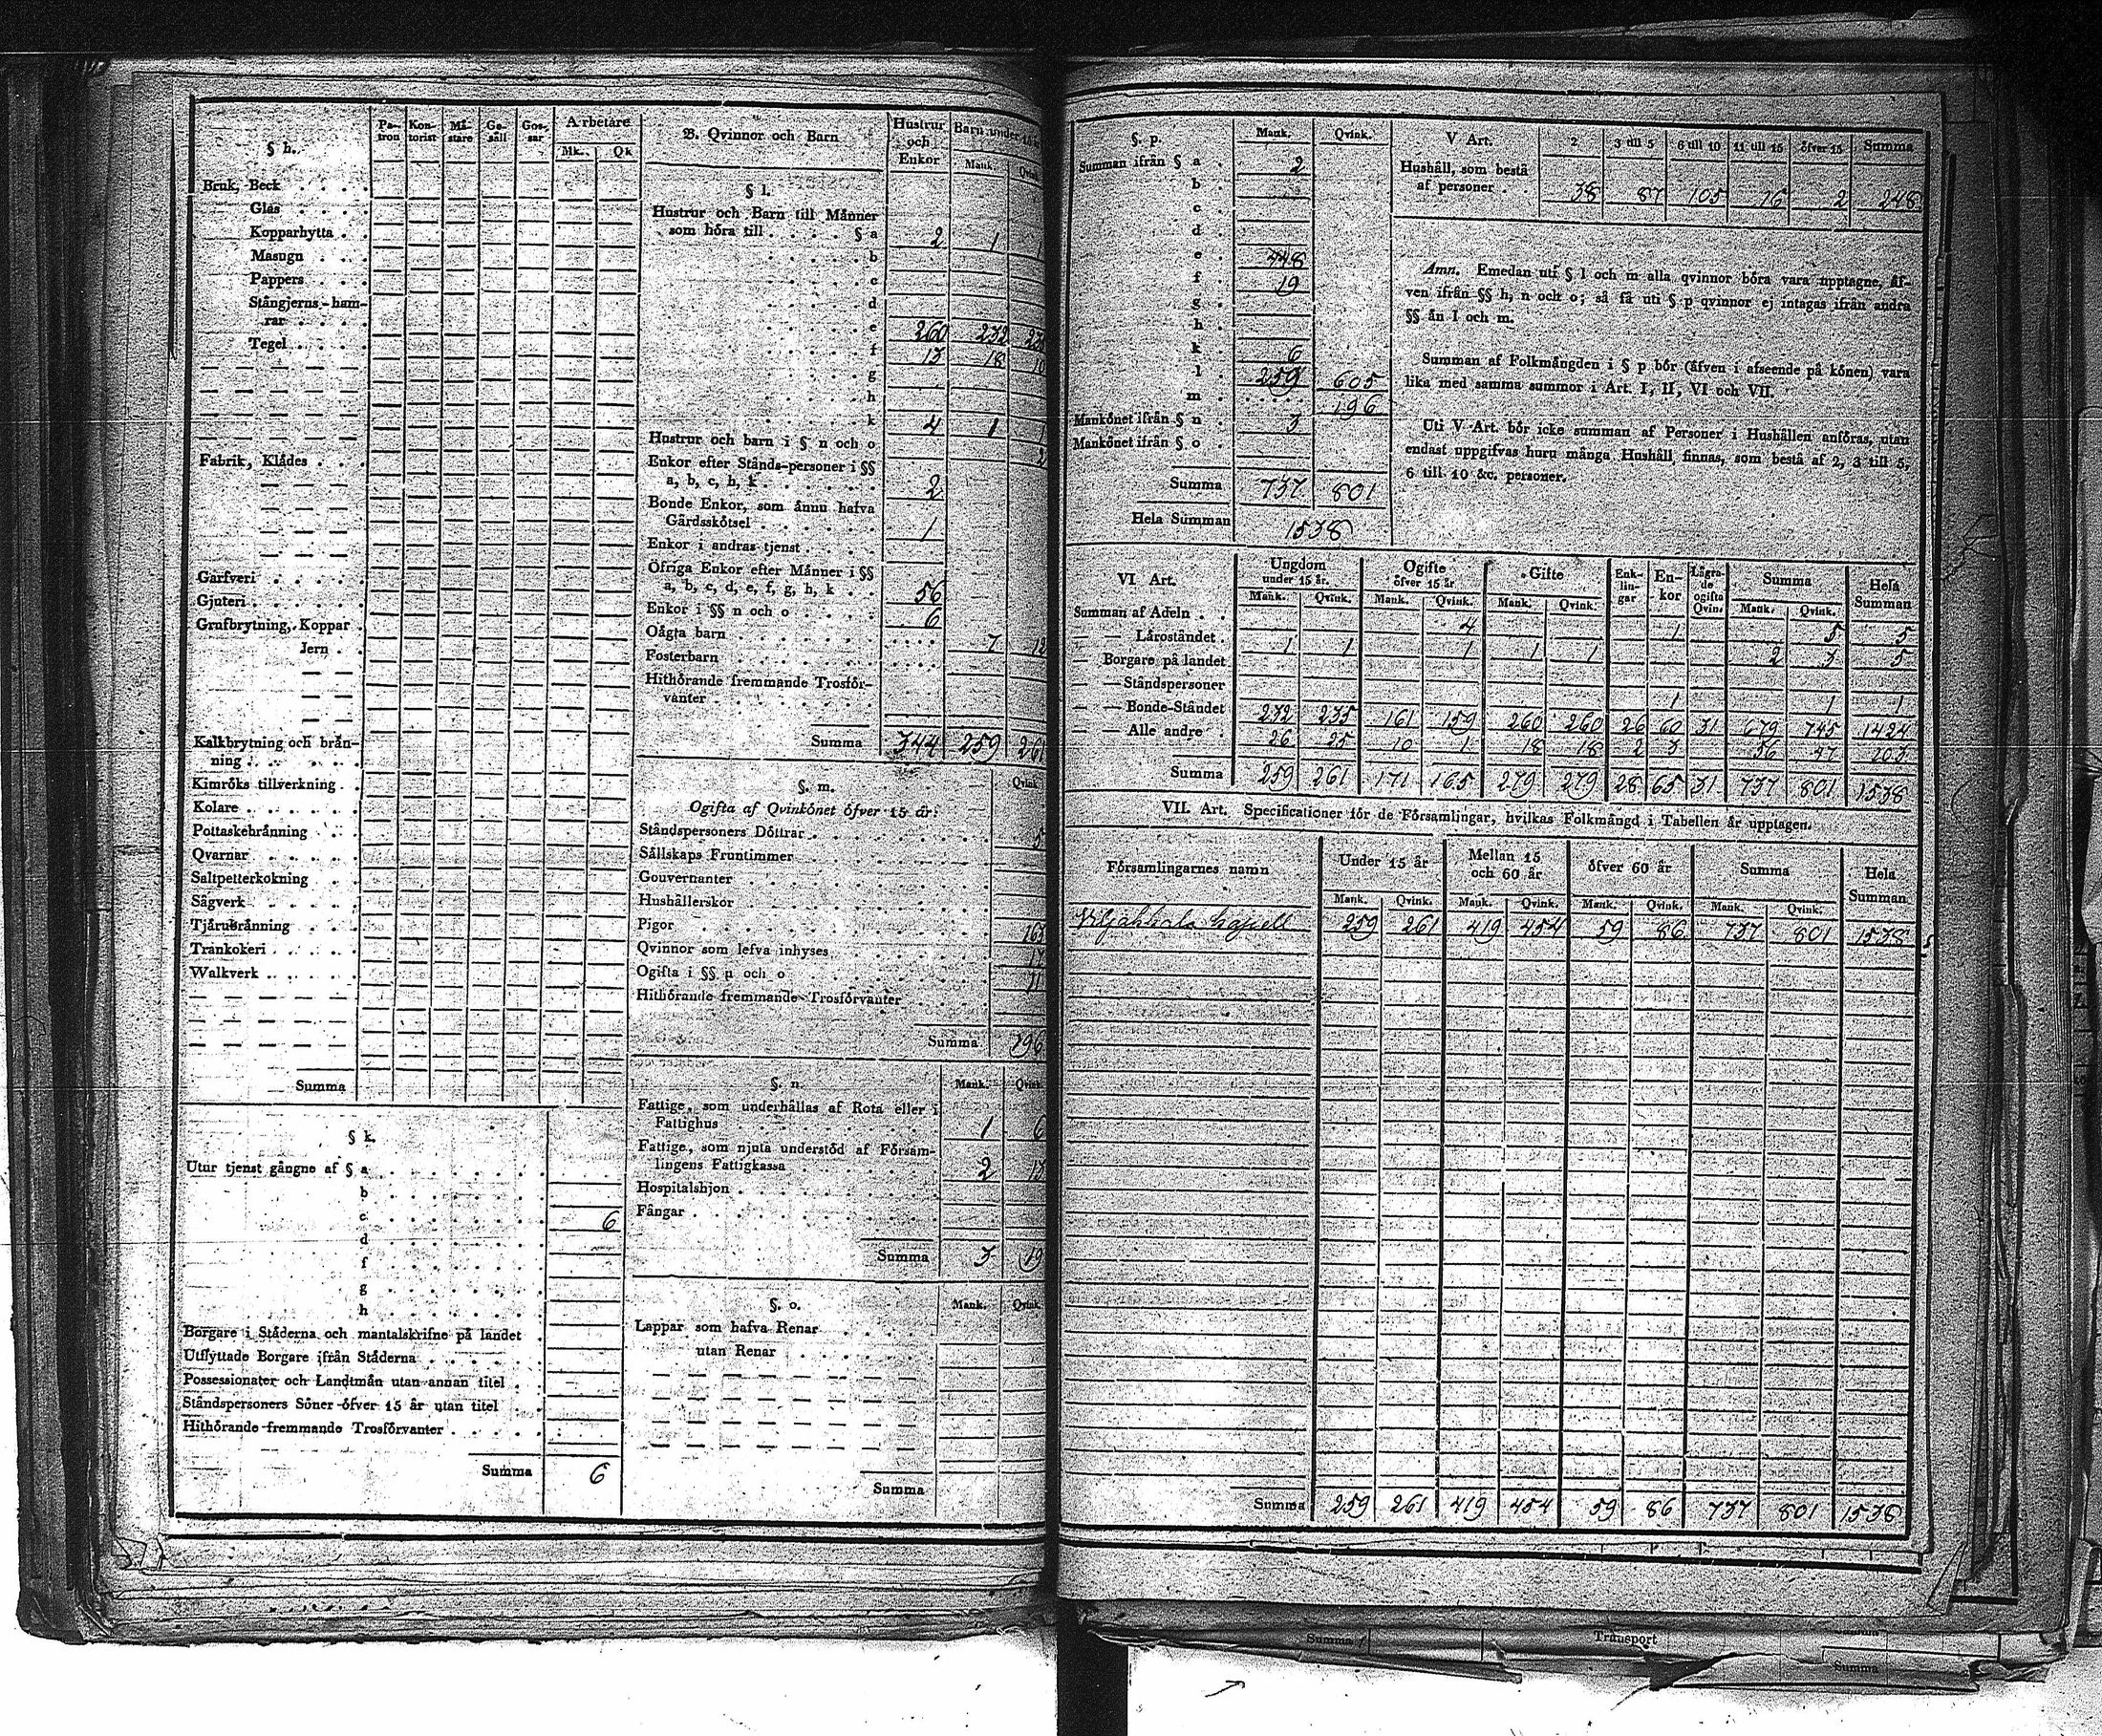 § h. Pa-tron Kon-torist Mä-stare Ge-säll Gos-sar Arbetare
Mk. Qk
Bruk, Beck
Glas
Kopparhytta
Masugn
Pappers
Stångjerns-ham-
rar
Tegel
Fabrik, Klådes
Garfveri
Gjuteri
Grufbrytning, Koppar
Jern
Kalkbrytning och brån-
ning
Kimröks tillverkning
Kolare
Pottaskebrånning
Qvarnar
Saltpetterkokning
Sågverk
Tjårubrånning
Trankokeri
Walkverk
Summa
§ k.
Utur tjenst gångne af § a
b
c 6
d
f
g
h
Borgare i Ståderna och mantalskrifne på landet
Utflyttade Borgare ifrån Ståderna
Possessionater och Landtmån utan annan titel
Ståndspersoners Söner öfver 15 år utan titel
Hithörande fremmande Trosförvanter
Summa 6
B. Qvinnor och Barn Hustrur och Enkor Barn under 15
Mank. Qvink
§ l.
Hustrur och Barn till Månner
som höra till § a 2 1 1
b
c
d
e 260 232
f 13 18 10
g
h
k 4 1
Hustrur och barn i § n och o 2
Enkor efter Stånds-personer i §§
a, b, c, h, k 2
Bonde Enkor, som ånnu hafva
Gårdsskötsel 1
Enkor i andras tjenst
Öfriga Enkor efter Månner i §§
a, b, c, d, e, f, g, h, k 56
Enkor i §§ n och o 6
Oågta barn 7 12
Fosterbarn
Hithörande fremmande Trosför-
vanter
Summa 344 259 261
§. m. Qvink
Ogifta af Qvinkönet öfver 15 år:
Ståndspersoners Döttrar 5
Sållskaps Fruntimmer
Gouvernanter
Hushållerskor
Pigor 163
Qvinnor som lefva inhyses 17
Ogifta i §§ n och o 11
Hithörande fremmande Trosförvanter
Summa 196
§. n. Mank. Qvink
Fattige, som underhållas af Rota eller i
Fattighus 1 6
Fattige, som njuta understöd af Försam-
lingens Fattigkassa 2 13
Hospitalshjon
Fångar
Summa 3 19
§. o. Mank. Qvink
Lappar som hafva Renar
utan Renar
Summa
§. p. Mank. Qvink.
Summan ifrån § a 2
b
c
d
e 448
f 19
g
h
k 6
l 259 605
m 196
Mankönet ifrån § n 3
Mankönet ifrån § o
Summa 737 801
Hela Summan 1538
V Art. 2 3 till 5 6 till 10 11 till 15 öfver 15 Summa
Hushåll, som bestå
af personer 38 87 105 16 2 248
Anm. Emedan uti § l och m alla qvinnor böra vara upptagne, åf-
ven ifrån §§ h, n och o; så få uti § p qvinnor ej intagas ifrån andra
§§ ån l och m.
Summan af Folkmångden i § p bör (åfven i afseende på könen) vara
lika med samma summor i Art. I, II, VI och VII.
Uti V Art. bör icke summan af Personer i Hushållen anföras, utan
endast uppgifvas huru många Hushåll finnas, som bestå af 2, 3 till 5,
6 till 10 &c. personer.
VI Art. Ungdom under 15 år. Ogifte öfver 15 år Gifte Enk-lin-gar En-kor Lågra-de ogifta Qvin. Summa Hela Summan
Mank. Qvink. Mank. Qvink. Mank. Qvink. Mank. Qvink.
Summan af Adeln 4 1 5 5
— — Låroståndet 1 1 1 1 1 2 3 5
— Borgare på landet
— — Ståndspersoner 1 1 1
— — Bonde-Ståndet 232 235 161 159 260 260 26 60 31 679 745 1424
— — Alle andre 26 25 10 1 18 18 2 3 56 47 103
Summa 259 261 171 165 279 279 28 65 31 737 801 1538
VII. Art. Specificationer för de Församlingar, hvilkas Folkmångd i Tabellen år upptagen.
Församlingarnes namn Under 15 år Mellan 15 och 60 år öfver 60 år Summa Hela Summan
Mank. Qvink. Mank. Qvink. Mank. Qvink. Mank. Qvink.
Viljakkala Capell 259 261 419 454 59 86 737 801 1538
Summa 259 261 419 454 59 86 737 801 1538
Summa Transport
Summa